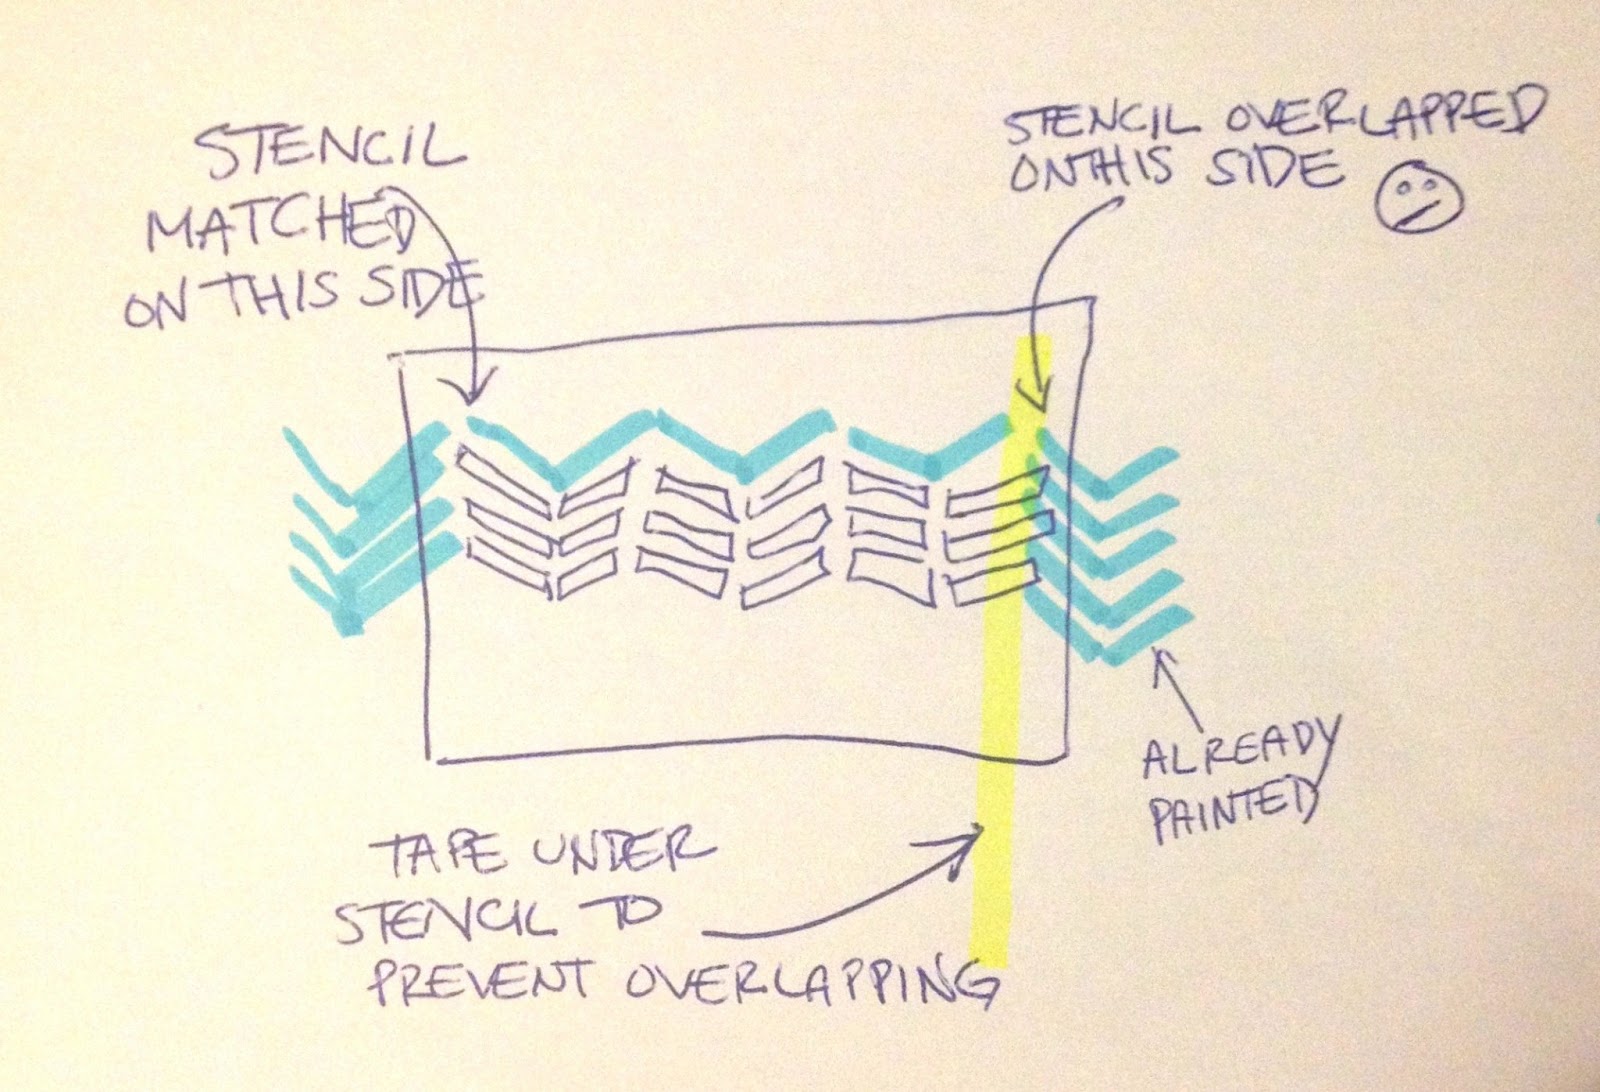 STENCIL
MATCHED
ON THIS SIDE
STENCIL OVERLAPPED
ON THIS SIDE
ALREADY
PAINTED
TAPE UNDER
STENCIL TO
PREVENT OVERLAPPING